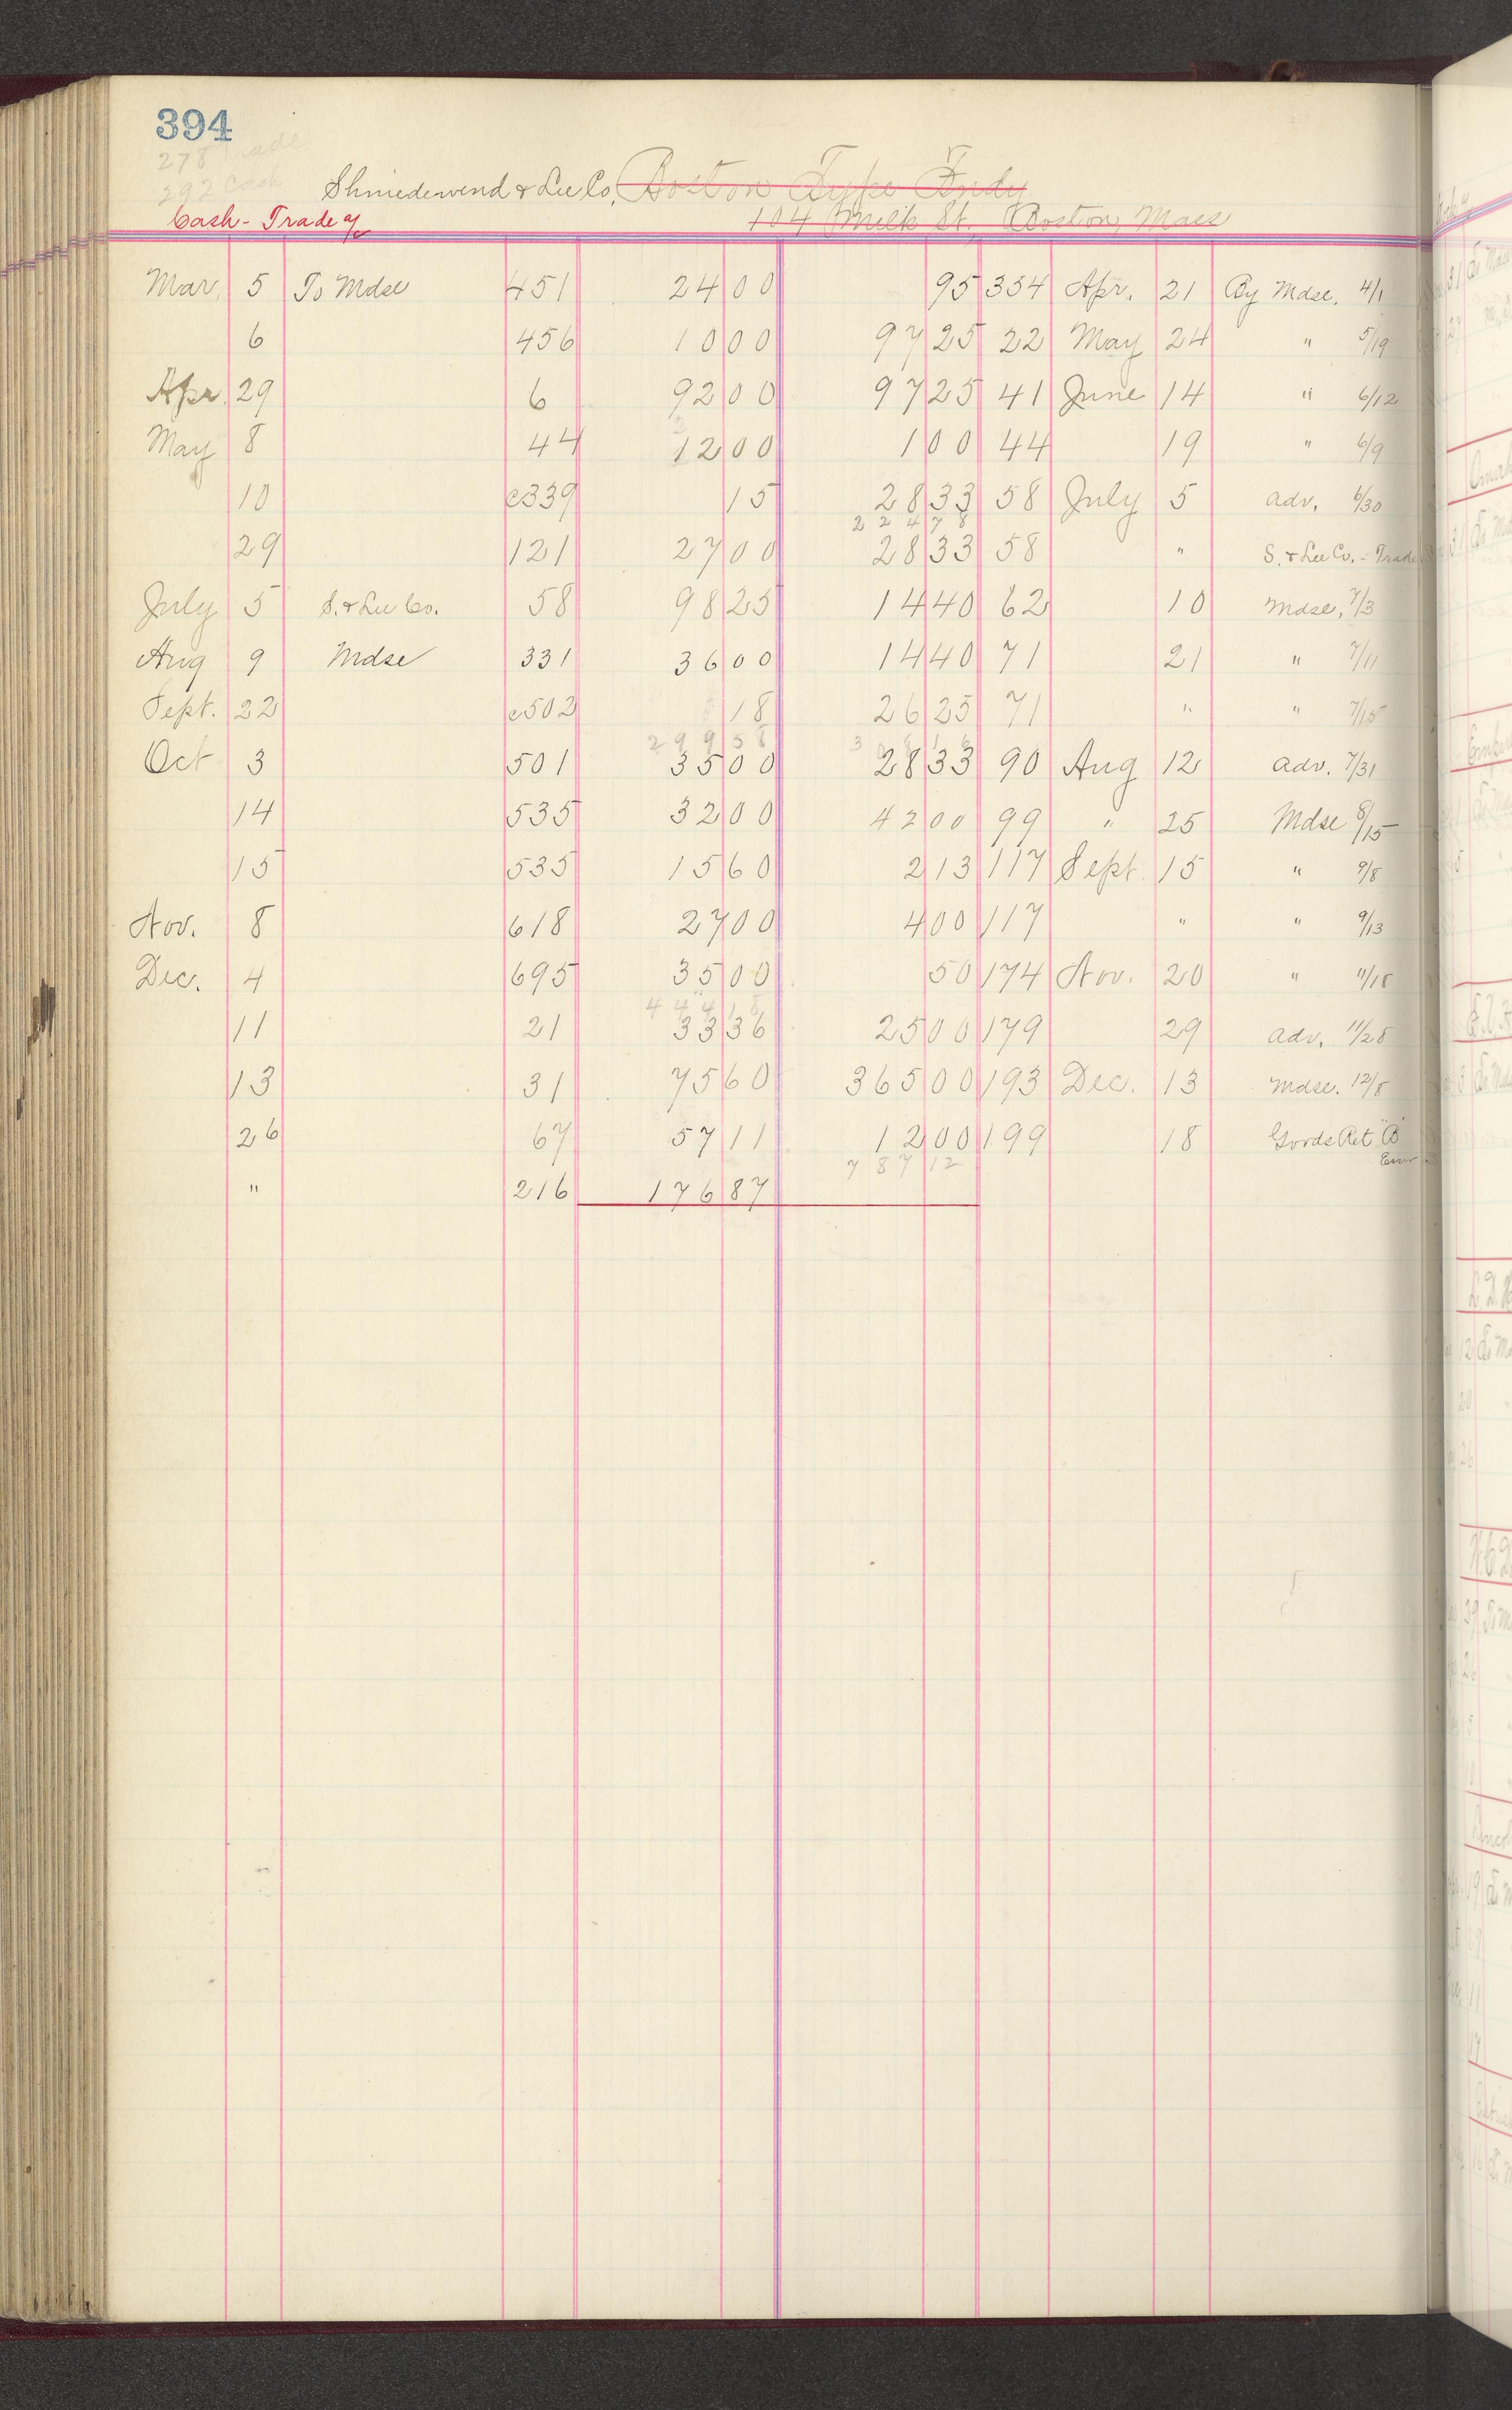 394
278 Trade
292 Cash
Shniedewend & Lee Co. Boston Type Fndy
Cash - Trade a/c 104 Milk St. Boston, Mass
Mar. 5 To Mdse 451 24 00 95 354 Apr. 21 By Mdse. 4/1
6 456 10 00 97 25 22 May 24 " 5/19
Apr. 29 6 92 00 97 25 41 June 14 " 6/12
May 8 44 12 00 1 00 44 19 " 6/9
10 c339 15 28 33 58 July 5 adv. 6/30
224 78
29 121 27 00 28 33 58 " S. & Lee Co. - Trade
July 5 S. & Lee Co. 58 98 25 14 40 62 10 Mdse, 7/3
Aug 9 Mdse 331 36 00 14 40 71 21 " 7/11
Sept. 22 c502 18 26 25 71 " " 7/15
299 58
Oct 3 501 35 00 28 33 90 Aug 12 adv. 7/31
14 535 32 00 42 00 99 " 25 Mdse 8/15
15 535 15 60 2 13 117 Sept. 15 " 9/8
Nov. 8 618 27 00 4 00 117 " " 9/13
Dec. 4 695 35 00 50 174 Nov. 20 " 11/18
444 18
11 21 33 36 25 00 179 29 adv. 11/28
13 31 75 60 365 00 193 Dec. 13 Mdse. 12/8
26 67 57 11 12 00 199 18 Goods Ret "B"
787 12 Error
" 216 176 87